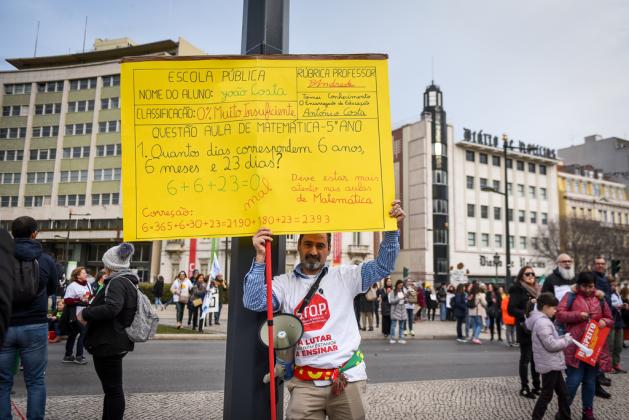 ESCOLA PÚBLICA
NOME DO ALUNO: João Costa
CLASSIFICAÇÃO: 0% Muito Insuficiente
RÚBRICA PROFESSOR
D'Andrade
Tomei Conhecimento
O Encarregado de Educação
António Costa
QUESTÃO AULA DE MATEMÁTICA-5º ANO
1. Quantos dias correspondem 6 anos,
6 meses e 23 dias?
6+6+23=0
mal
Deve estar mais
atento nas aulas
de Matemática
Correção:
6×365+6×30+23=2190+180+23=2393
STOP
A LUTAR
TAMBÉM ESTAMOS
A ENSINAR
Diário de Notícias